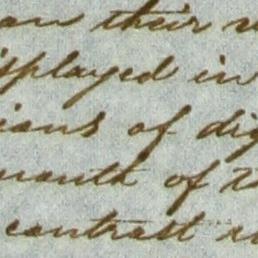 an their
displayed in
ians of dig
mouth of t
contrast